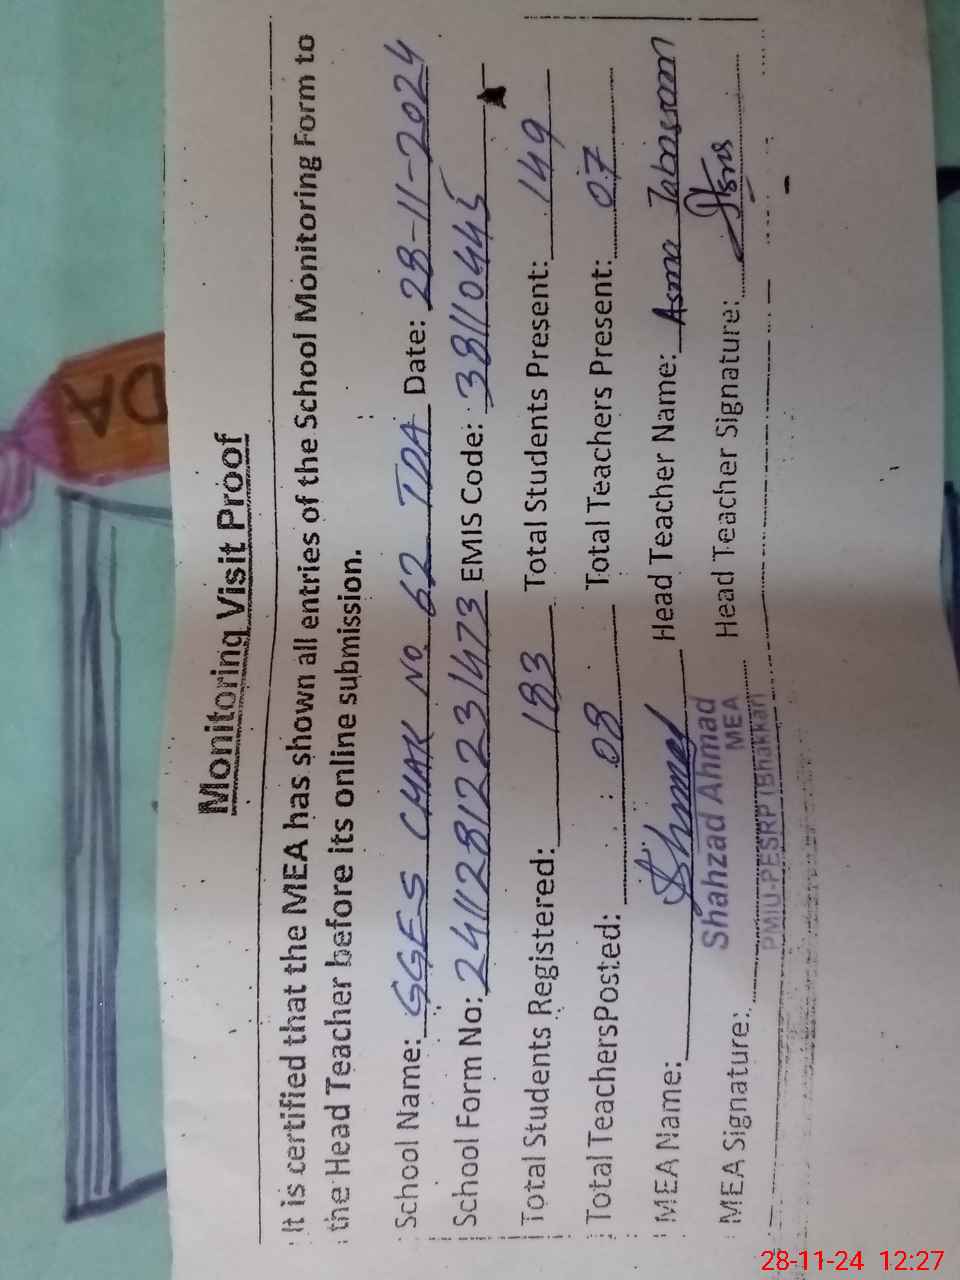 DA
Monitoring Visit Proof
It is certified that the MEA has shown all entries of the School Monitoring Form to
the Head Teacher before its online submission.
School Name: GGES CHAK NO 62 TDA Date: 28-11-2024
School Form No: 241128122231473 EMIS Code: 38110445
Total Students Registered: 183 Total Students Present: 149
Total TeachersPosted: 08 Total Teachers Present: 07
MEA Name: Head Teacher Name: Asma Tabassam
Shahzad Ahmad
MEA
MEA Signature: Head Teacher Signature: Asma
PMIU-PESRP (Bhakkar)
28-11-24 12:27